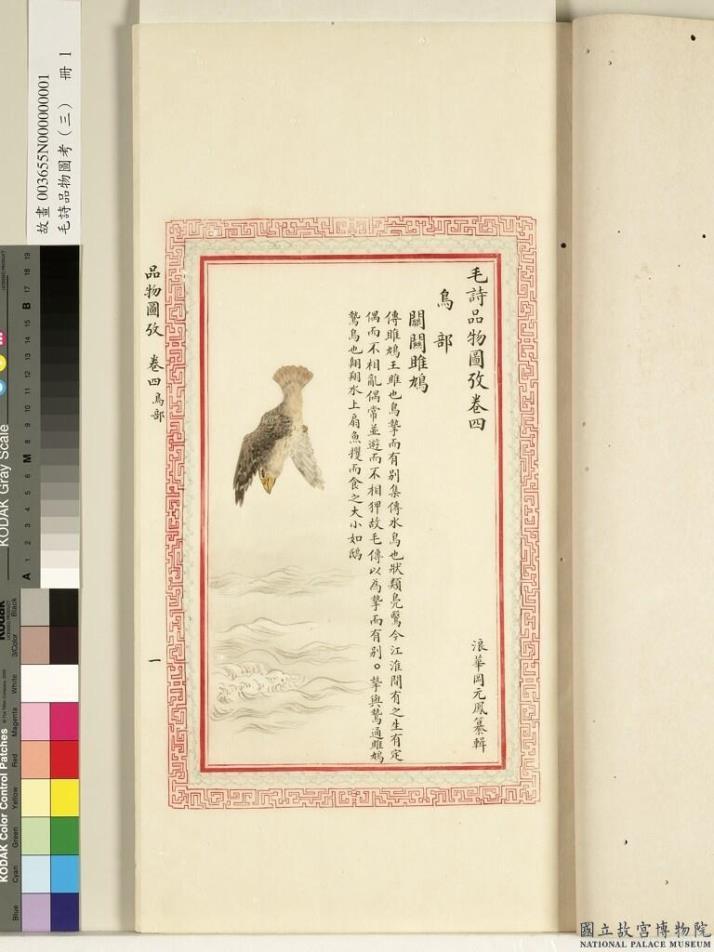 毛詩品物圖攷卷四
浪華岡元鳳纂輯
鳥部
關關雎鳩
傳雎鳩王雎也鳥摯而有别集傳水鳥也狀類鳧鷖今江淮間有之生有定
偶而不相亂偶常並遊而不相狎故毛傳以為摯而有别。摯與鷙通雎鳩
鷙鳥也翱翔水上扇魚攫而食之大小如鴟
品物圖攷 卷四鳥部 一
故畫 003655N000000001
毛詩品物圖考（三） 冊 1
KODAK Gray Scale
A 1 2 3 4 5 6 M 8 9 10 11 12 13 14 15 B 17 18 19
Kodak
KODAK Color Control Patches
Blue Cyan Green Yellow Red Magenta White 3/Color Black
國立故宮博物院
NATIONAL PALACE MUSEUM